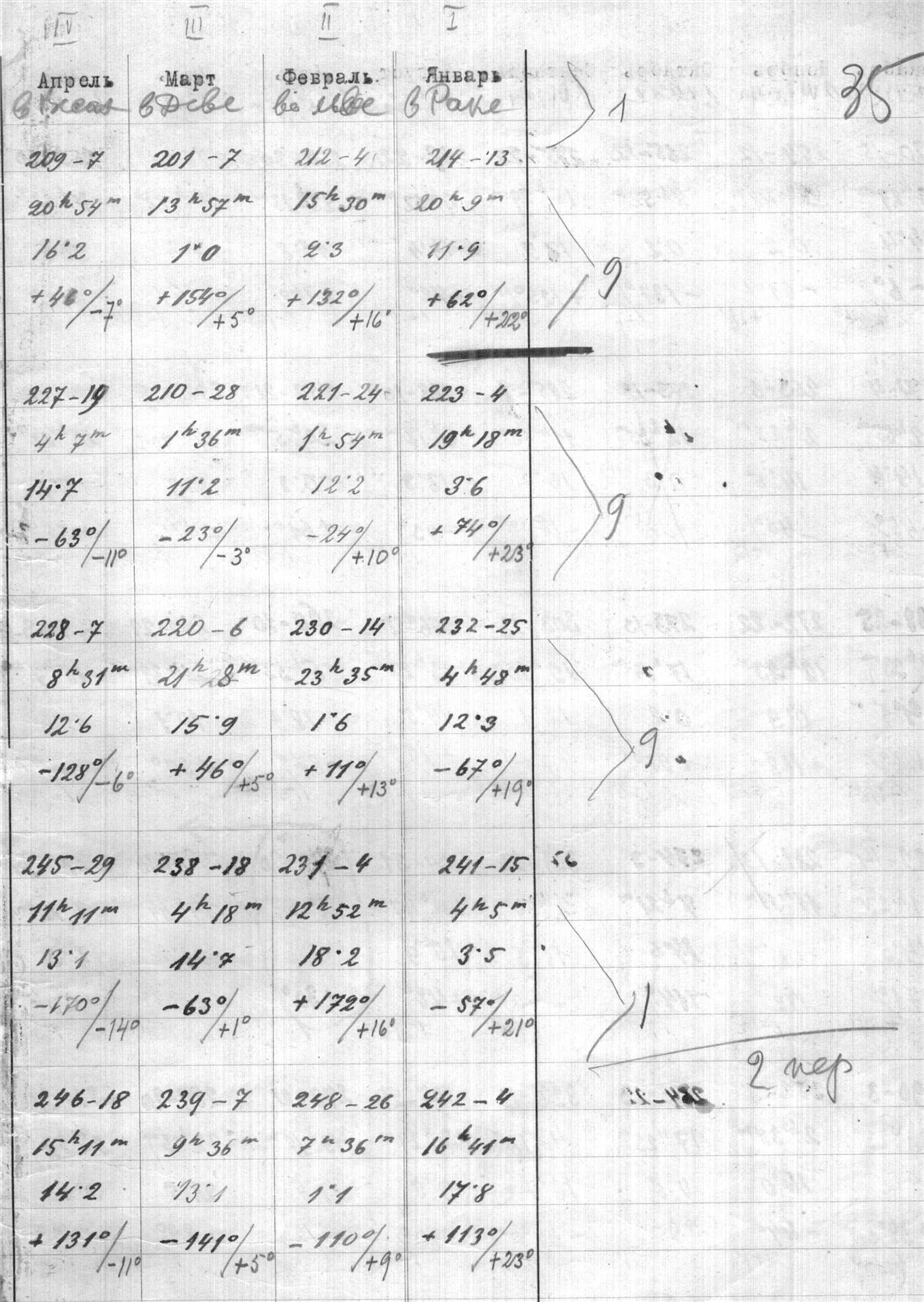 IV III II I
Апрель Март Февраль. Январь
в Деве во Льве в Раке
1
35
209-7 201-7 212-4 214-13
20h 54m 13h 57m 15h 30m 20h 9m
16·2 1·0 2·3 11·9
/-7° +154°/+5° +132°/+16° +62°/+22°
9
227-19 210-28 221-24 223-4
4h 7m 1h 36m 1h 54m 19h 18m
14·7 11·2 12·2 3·6
-63°/-11° -23°/-3° -24°/+10° +74°/+23°
9
228-7 220-6 230-14 232-25
8h 31m 21h 28m 23h 35m 4h 48m
12·6 15·9 1·6 12·3
-128°/-6° +46°/+5° +11°/+13° -67°/+19°
9
245-29 238-18 231-4 241-15
11h 11m 4h 18m 12h 52m 4h 5m
13·1 14·7 18·2 3·5
-170°/-14° -63°/+1° +172°/+16° -57°/+21°
1
2 пер
246-18 239-7 248-26 242-4
15h 11m 9h 36m 7h 36m 16h 41m
14·2 13·1 1·1 17·8
+131°/-11° -141°/+5° -110°/+9° +113°/+23°